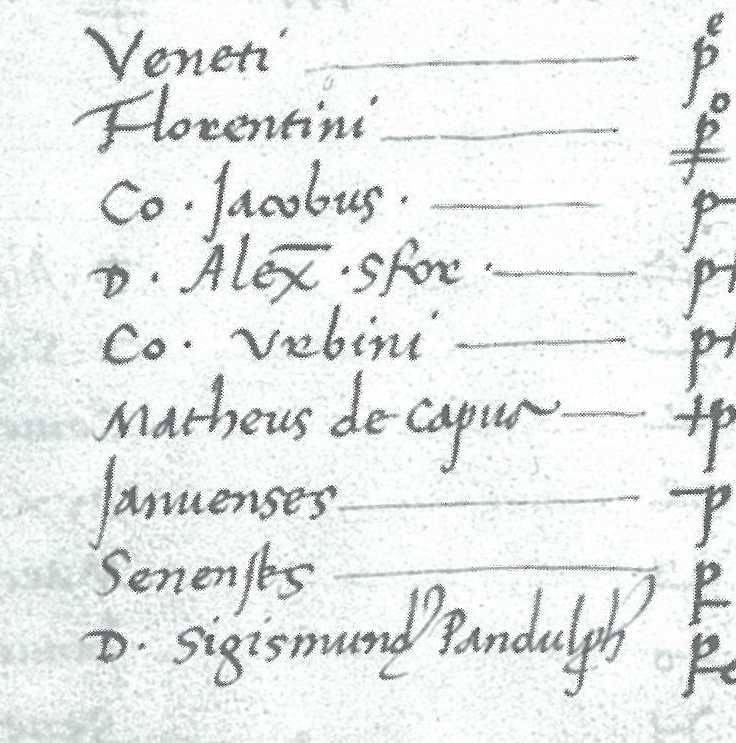 Veneti — p^e
Florentini — p^o
Co. Jacobus. — p
D. Alex̄. Sfor. — p
Co. Urbini — p
Matheus de Capua — p
Januenses — p
Senenses — p
D. Sigismund Pandulph p